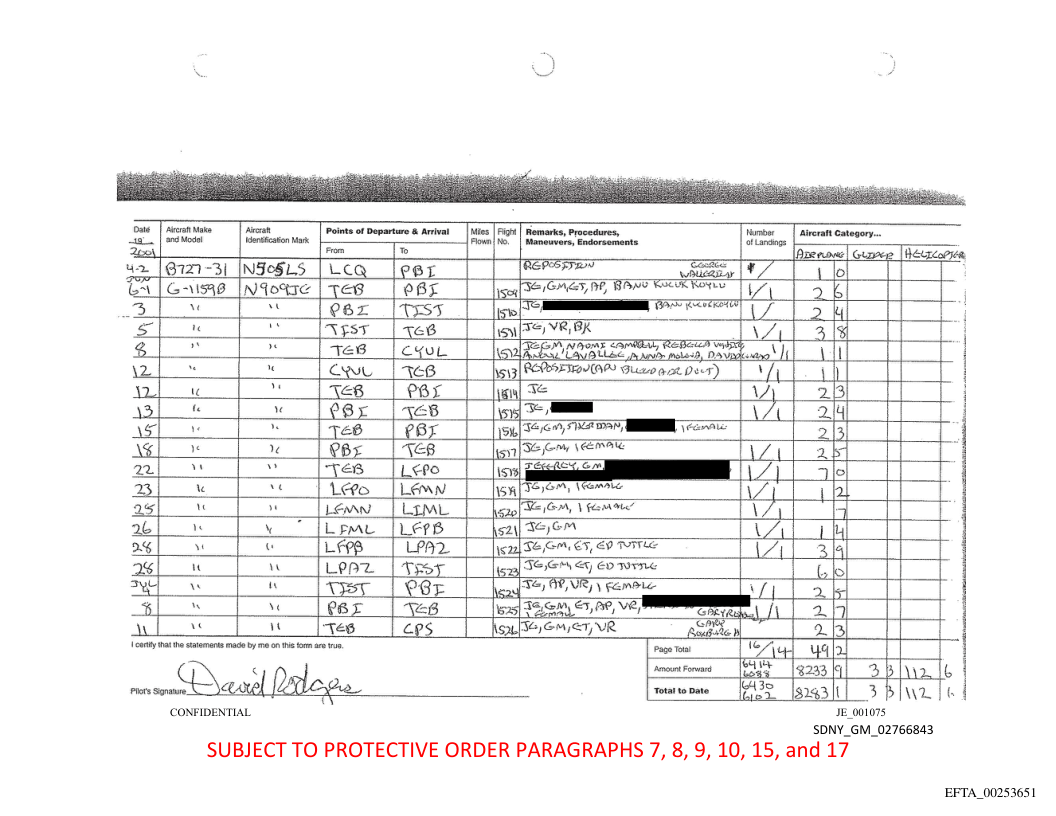 Date Aircraft Make and Model Aircraft Identification Mark Points of Departure & Arrival Miles Flown Flight No. Remarks, Procedures, Maneuvers, Endorsements Number of Landings Aircraft Category...
19 2001 From To AIRPLANE GLIDER HELICOPTER
4-2 B727-31 N505LS LCQ PBI REPOSITION GEORGE 1 0
JUN 6-1 G-1159B N909JE TEB PBI 1509 JE, GM, ET, AP, BANU KUCUKKOYLU 1/1 2 6
3 " " PBI TIST 1510 JE, BANU KUCUKKOYLU 1/ 2 4
5 " " TIST TEB 1511 JE, VR, BK 1/1 3 8
8 " " TEB CYUL 1512 JE, GM, NAOMI CAMPBELL, REBECCA ANDRE LAVALLEE, ANNA 1/1 1 1
12 " " CYUL TEB 1513 REPOSITION (APU BLEED AIR DUCT) 1/1 1 1
12 " " TEB PBI 1514 JE 1/1 2 3
13 " " PBI TEB 1515 JE, 1/1 2 4
15 " " TEB PBI 1516 JE, GM, , 1 FEMALE 2 3
18 " " PBI TEB 1517 JE, GM, 1 FEMALE 1/1 2 5
22 " " TEB LFPO 1518 JEFFREY, GM, 1/1 7 0
23 " " LFPO LFMN 1519 JE, GM, 1 FEMALE 1/1 1 2
25 " " LFMN LIML 1520 JE, GM, 1 FEMALE 1/1 7
26 " " LIML LFPB 1521 JE, GM 1/1 1 4
28 " " LFPB LPAZ 1522 JE, GM, ET, ED TUTTLE 1/1 3 9
28 " " LPAZ TIST 1523 JE, GM, ET, ED TUTTLE 6 0
JUL 4 " " TIST PBI 1524 JE, AP, VR, 1 FEMALE 1/1 2 5
8 " " PBI TEB 1525 JE, GM, ET, AP, VR, 1 FEMALE GARY 1/1 2 7
11 " " TEB CPS 1526 JE, GM, ET, VR GARY ROXBURGH 2 3
I certify that the statements made by me on this form are true.
Page Total 16/14 49 2
Amount Forward 6414 6088 8233 9 3 3 112 6
Pilot's Signature David Rodgers
Total to Date 6430 6102 8283 1 3 3 112
CONFIDENTIAL JE_001075
SDNY_GM_02766843
SUBJECT TO PROTECTIVE ORDER PARAGRAPHS 7, 8, 9, 10, 15, and 17
EFTA_00253651